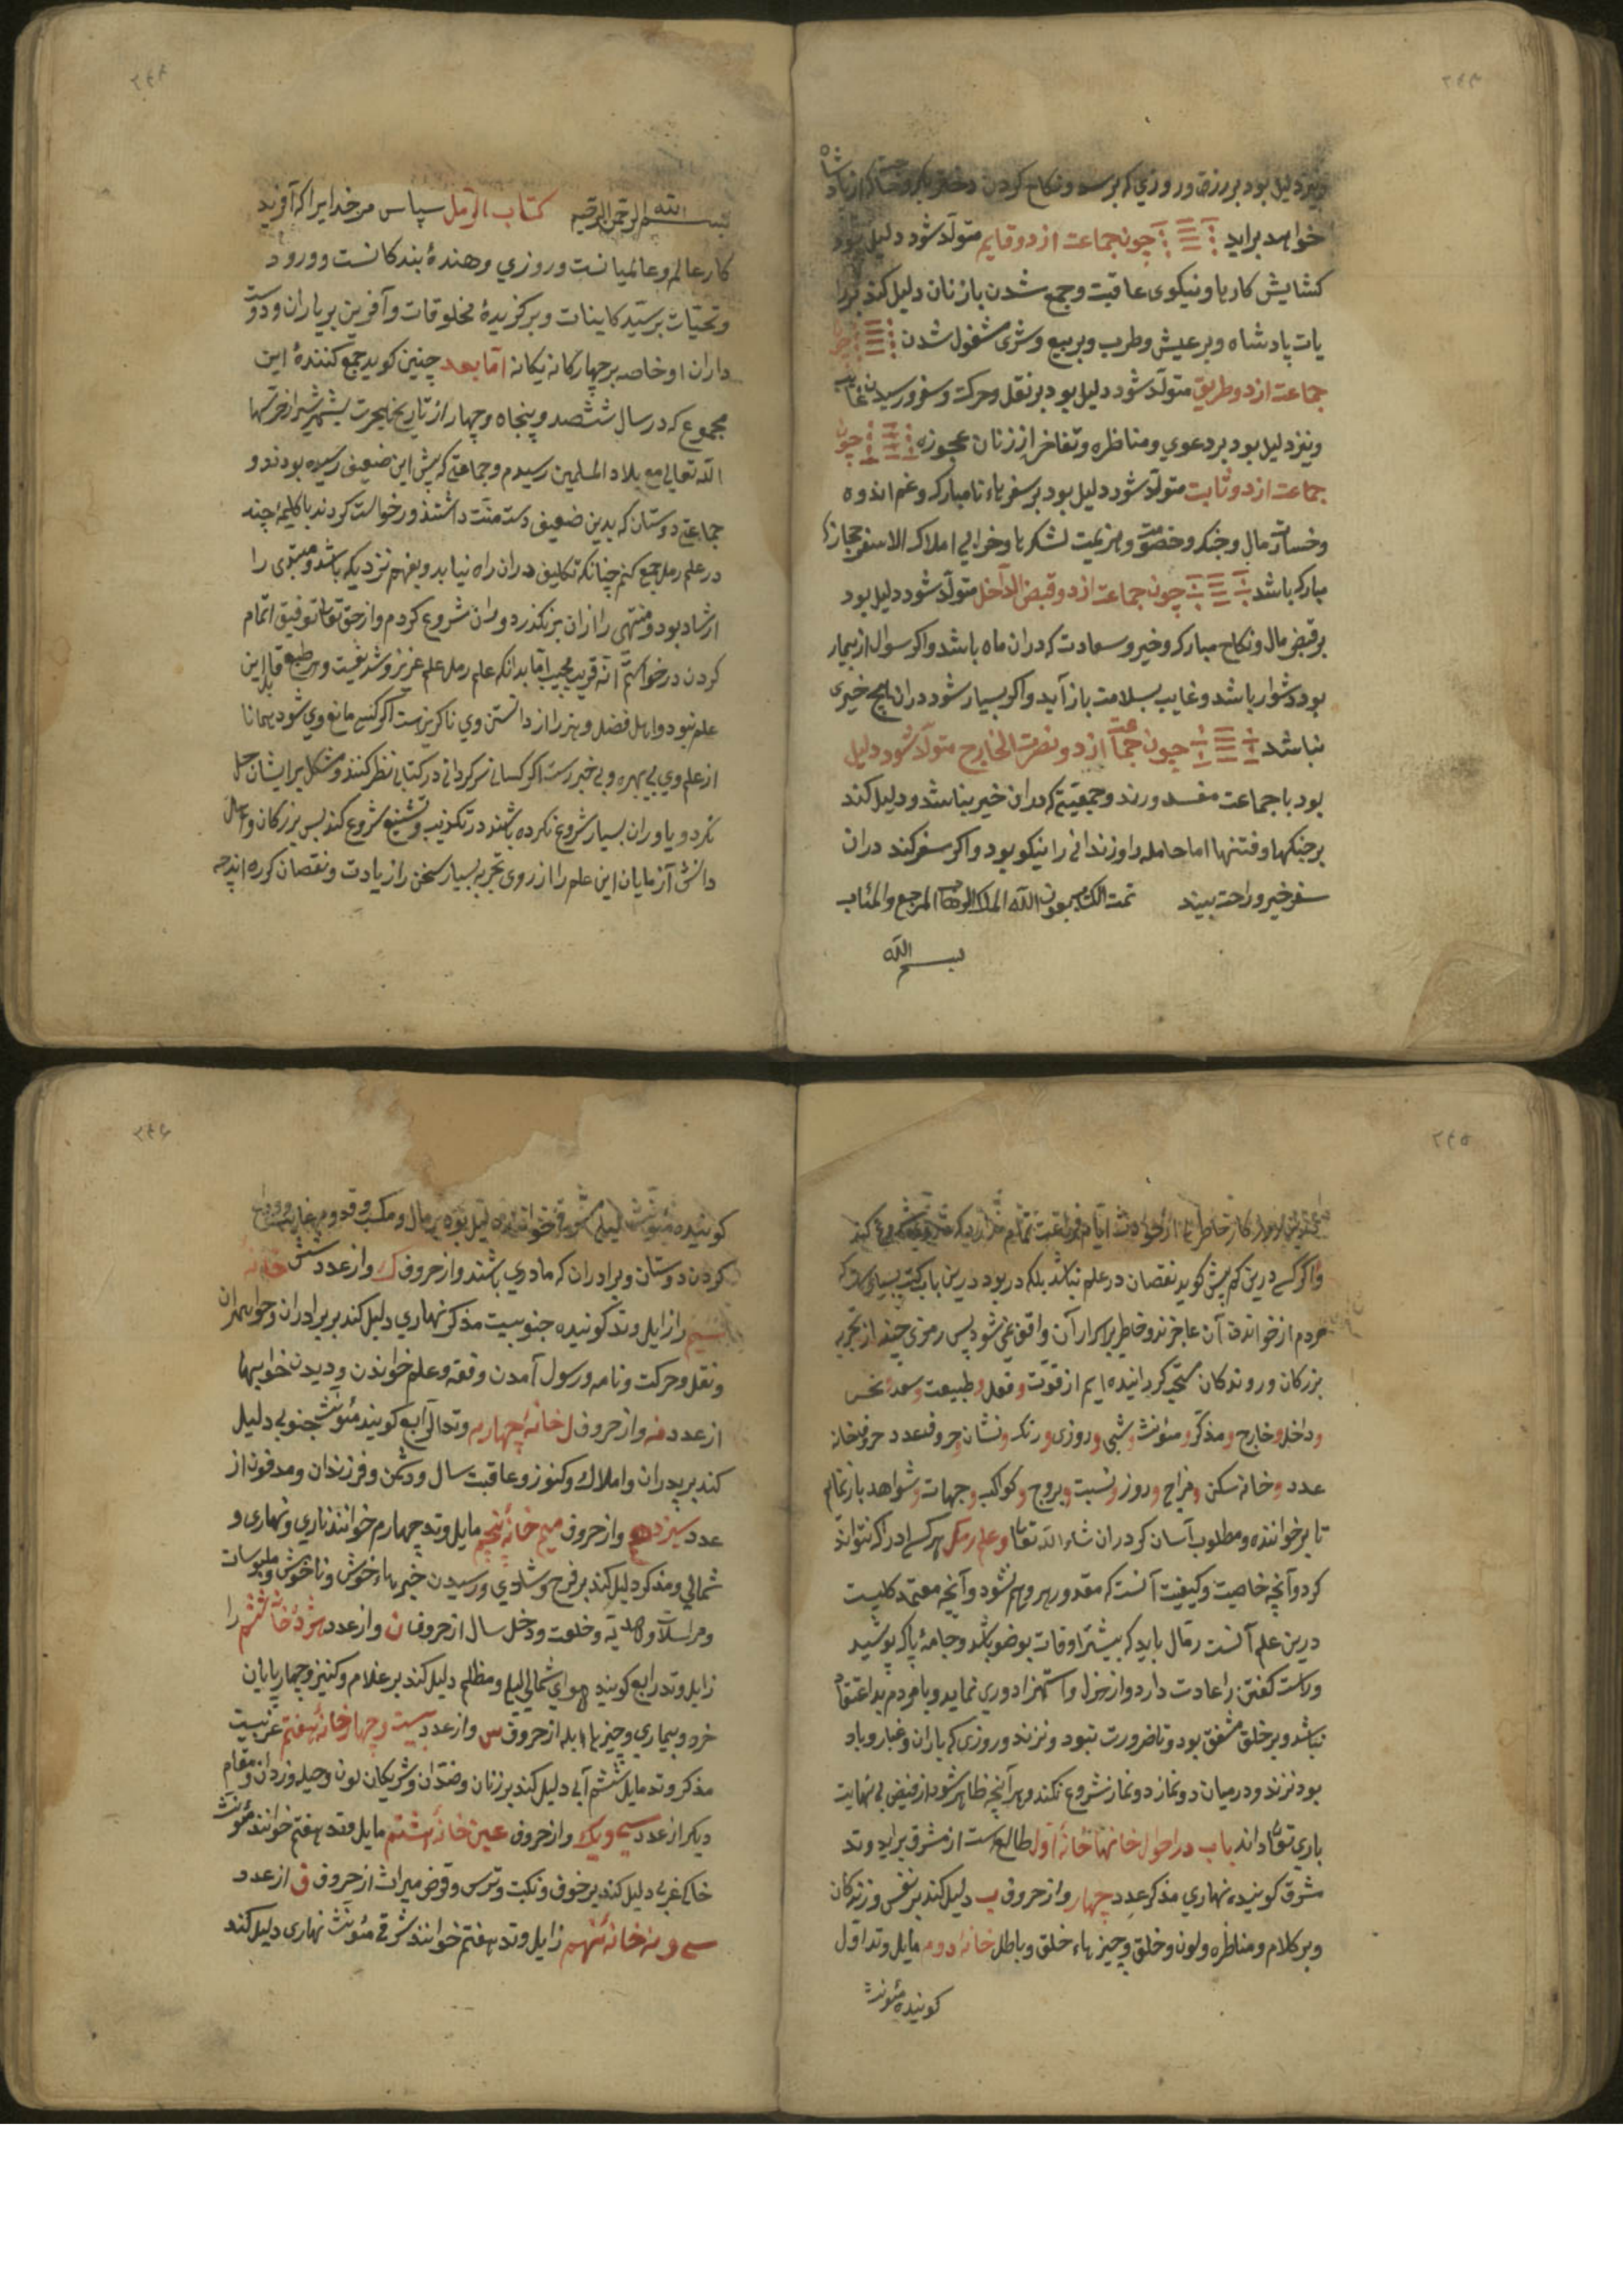 ۲۴۳
ونیز دلیل بود بر رزق و روزی که برسد و نکاح کردن
خواهد براید چون جماعت از دو قایم متولّد شود دلیل بود
کشایش کارها و نیکوی عاقبت و جمع شدن با زنان دلیل کند بر
یات پادشاه و بر عیش و طرب و بر بیع و شری مشغول شدن چون
جماعت از دو طریق متولّد شود دلیل بود بر نقل و حرکت و سفر و رسیدن غایب
و نیز دلیل بود بر دعوی و مناظره و تفاخر از زنان عجوزه چون
جماعت از دو ثابت متولّد شود دلیل بود بر سفرهاء نامبارک و غم اندوه
و خسارت مال و جنک و خصومت و هزیمت لشکرها و خرابی املاک الا سفر حجاز
مبارک باشد چون جماعت از دو قبض الدّاخل متولّد شود دلیل بود
بر قبض مال و نکاح مبارک و خیر و سعادت که دران ماه باشد و اکر سوال از بیمار
بود دشوار باشد و غایب بسلامت باز آید و اکر بسیار شود دران هیچ خیری
نباشد چون جماعت از دو نصرت الخارج متولّد شود دلیل
بود با جماعت مفسد و رند و جمعیتی که دران خیر نباشد و دلیل کند
بر جنکها و فتنها اما حامله را و زندانی را نیکو بود و اکر سفر کند دران
سفر خیر و راحت بیند تمت الکتاب بعون اللّه الملک الوهاب المرجع والمئاب
بسم اللّه
۲۴۴
بسم اللّه الرّحمن الرّحیم کتاب الرّمل سپاس مر خدایرا که آفرید
کار عالم و عالمیانست و روزی دهندۀ بندکانست و درود
و تحیّات بر سیّد کاینات و برکزیدۀ مخلوقات و آفرین بر یاران و دوست
داران او خاصه بر چهارکانه یکانه امّا بعد چنین کوید جمع کنندۀ این
مجموع که در سال ششصد و پنجاه و چهار از تاریخ هجرت بشهر شیراز حرسها
اللّه تعالی مع بلاد المسلمین رسیدم و جماعتی که پیش این ضعیف رسیده بودند و
جماعتی دوستان که بدین ضعیف دست منّت داشتند درخواست کردند با کلیمۀ چند
در علم رمل جمع کنم چنانکه تکلیف دران راه نیابد و بفهم نزدیک باشد و مبتدی را
ارشاد بود و منتهی را ازان بر نکذرد و دران شروع کردم و از حق تعالی توفیق اتمام
کردن درخواستم انّه قریب مجیب امّا بدانکه علم رمل علم عزیز و شریفست و هر طبع قابل این
علم نبود و اهل فضل و هنر را از دانستن وی ناکزیرست اکر کسی مانع وی شود همانا
از علم وی بی بهره و بی خبرست اکر کسانی سرکردانی در کتابی نظر کنند و مشکل بر ایشان حل
نکردد یا دران بسیار شروع نکرده باشند در تکذیب و تشنیع شروع کند پس بزرکان و اهل
دانش آزمایان این علم را از روی تجربه بسیار سخن را زیادت و نقصان کرده اند چه
۲۴۵
و اکر کسی درین کم بیش کوید نقصان در علم نباشد بلکه در بود درین باب کتب بسیارست که
مردم از خواندن آن عاجزند و خاطر بر اسرار آن واقف نمی شود پس رمزی چند از تجربه
بزرکان و روندکان ستخرج کردانیده ایم از قوّت و فعل و طبیعت و سعد و نحس
و داخل و خارج و مذکّر و مئونث و شبی و روزی و رنک و نشان و حروف عدد حروف خانه
عدد و خانه سکن و مزاج و روز و نسبت و بروج و کواکب و جهات و شواهد باز نمائیم
تا بر خواننده و مطلوب آسان کردد ان شاء اللّه تعالی و علم رمل هر کسی ادراک نتواند
کرد و آنچه خاصیت و کیفیت آنست که مقدور هر وهم نشود و آنچه معتمد کلیست
درین علم آنست رمّال باید که بیشتر اوقات بوضو باشد و جامۀ پاک پوشید
و راست کفتن را عادت دارد و از هزل و استهزا دوری نماید و با مردم بد اعتقاد
نباشد و بر خلق مشفق بود و تا ضرورت نبود و نزند و روزی که باران و غبار و باد
بود نزند و در میان دو نماز دو نماز شروع نکند و هر آنچه ظاهر شود از فیض بی نهایت
باری تعالی داند باب در احوال خانها خانۀ اول طالع ست از مشرق براید وتد
مشرق کویند نهاری مذکر عدد چهار و از حروف ب دلیل کند بر نفس و زندکان
و بر کلام و مناظره و لون و خلق و چیزهاء خلق و باطل خانۀ دوم مایل وتد اول
کویند مئونث
۲۴۶
کویند مئونث لیلی مشرقی خوانند دلیل بود بر مال و مکسب و قدوم غایب و وداع
کردن دوستان و برادران که مادری باشند و از حروف ک و از عدد شش خانۀ
سیم را زایل وتد کویند جنوبیست مذکر نهاری دلیل کند بر برادران و خواهران
و نقل و حرکت و نامه و رسول آمدن وقفه و علم خواندن و دیدن خوابها
از عدد نه و از حروف ل خانۀ چهارم وتد الرّابع کویند مئونث جنوبی دلیل
کند بر پدران و املاک و کنوز و عاقبت سال و دشمن و فرزندان و مدفون از
عدد سیزدهم و از حروف میم خانۀ پنجم مایل وتد چهارم خوانند ناری و نهاری و
شمالی و مذکر دلیل کند بر فرح و شادی و رسیدن خبرهاء خوش و ناخوش و ملبوسات
و مراسلات و هدیه و خلعت و دخل سال از حروف ن و از عدد هژده خانۀ ششم را
زایل وتد رابع کویند هوای شمالی لیلی و مظلم دلیل کند بر غلام و کنیز و چهارپایان
خرد و بیماری و چیزهاء ابله از حروف س و از عدد بیست و چهار خانۀ هفتم غربیست
مذکر وتد مایل ششم آبی دلیل کند بر زنان و ضدّان و شریکان لون و حیله و زدان و مقام
دیکر از عدد سی و یک و از حروف عین خانۀ هشتم مایل وتد هفتم خوانند مئونث
خاکی غربی دلیل کند بر خوف و نکبت و ترس و قرض میراث از حروف ف از عدد
سی و نه خانۀ نهم زایل وتد هفتم خوانند شرقی مئونث نهاری دلیل کند